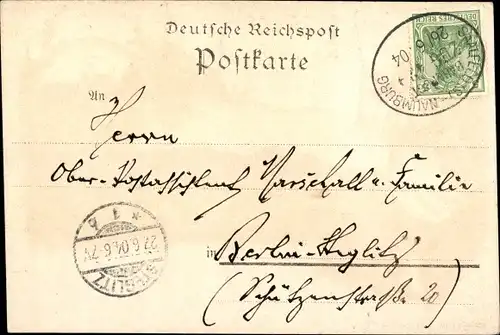 Deutsche Reichspost
Postkarte
DEUTSCHES REICH
NAUMBURG
26 6 04
An
Herrn
Ober-Postassistent Marschall u. Familie
in Berlin-Steglitz
(Schützenstraße 20)
* 1 b
27.6.04. 6-7V
STEGLITZ